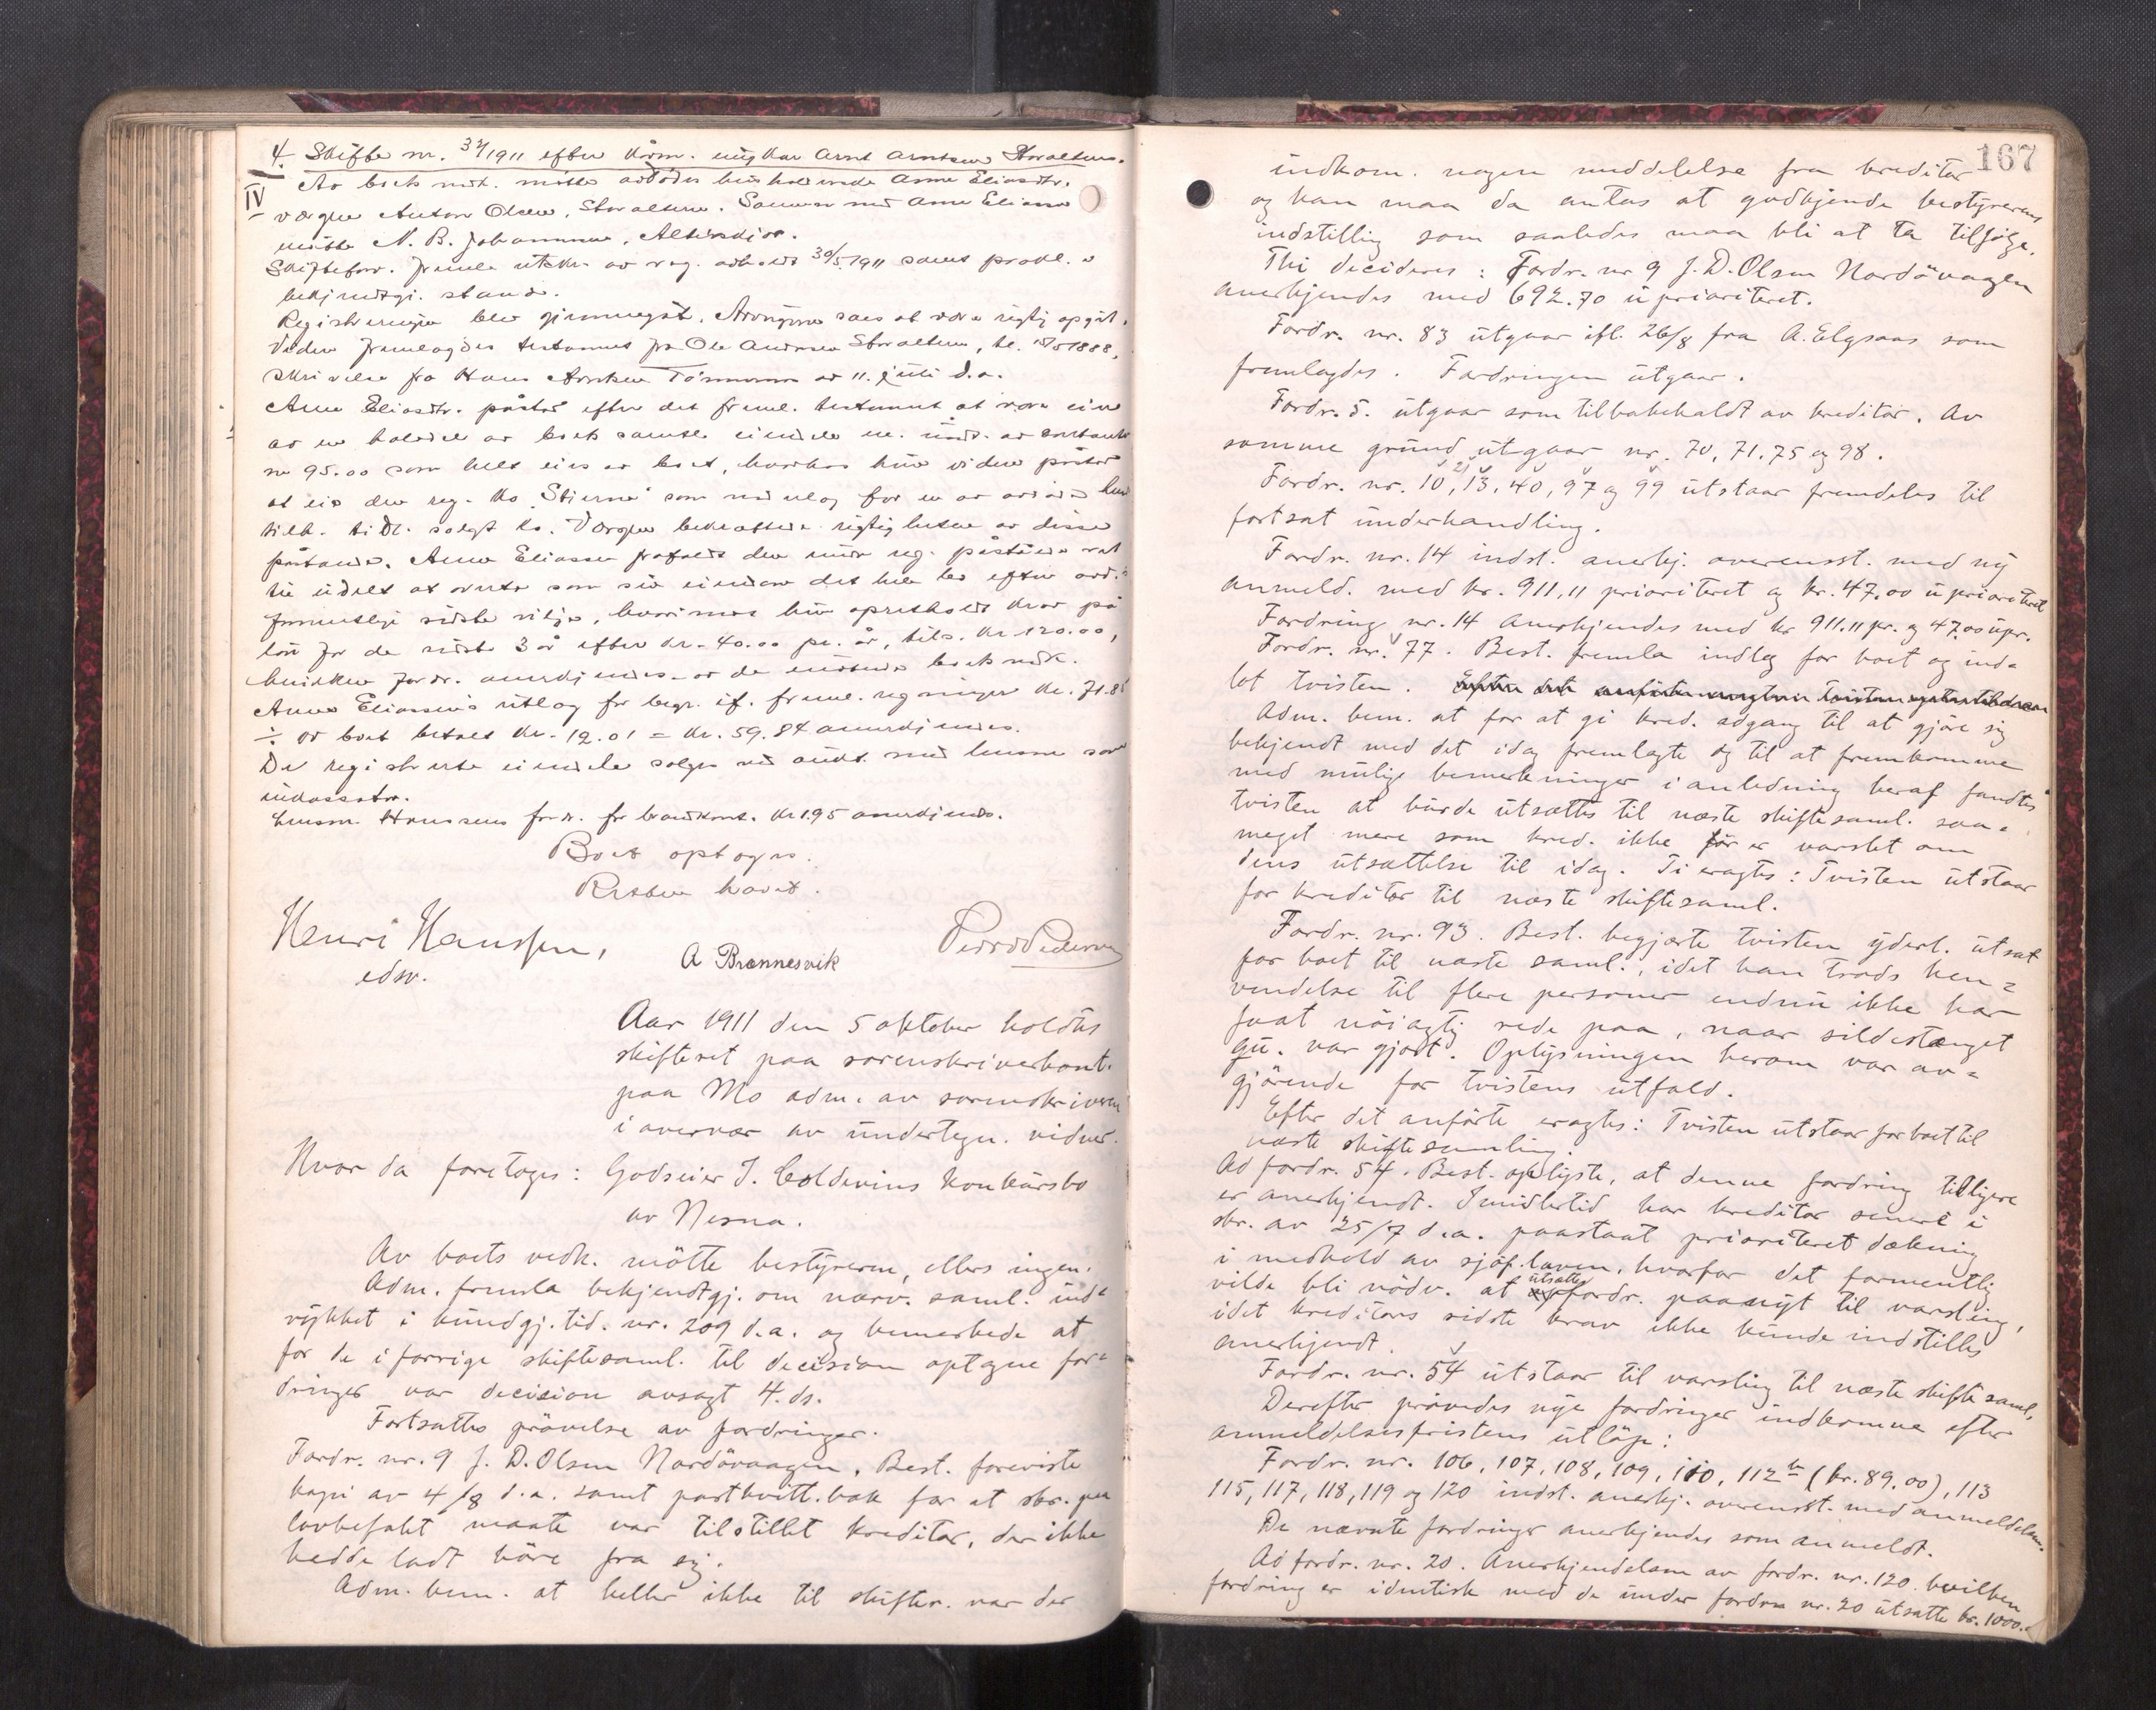 4. Skifte nr. 34/1911 efter korm. ungkar Arnt Arntsen Storalteren.
IV
Av boets vedk. mötte avdödes husholderske Anne Eliasdtr.
værgen Anton Olsen, Storalteren. Sammen med Anne Eliassen
mötte N. B. Johannesen, Alternskjær.
Skiftefor. fremla utskr. av reg. avholdt 30/5 1911 samt prokl. s
bekjendtgj. stand.
Registreringen blev gjennemgåt. Arvingerne saes at være rigtig opgit.
Videre fremlagdes testament fra Ole Andersen Storalteren, tl. 15/5 1888,
skrivelse fra Hans Arntsen av 11. juli d.a.
Anne Eliasdtr. påstod efter det freml. testament at være eier
av en halvdel av boets samtl. eiendele
nr 95.00 som helt eies av boet, hvorhos hun videre påstod
at eie den reg. ko "Stjerna" som vederlag for en av avdöde
tidl. solgt ko. Værgen bekræftede rigtigheten av disse
påstande. Anne Eliassen frafaldt den under reg. påståede ret
til udelt at overta som sin eiendom det hele bo efter avd.s
formentlige sidste vilje, hvorimot hun opretholdt krav på
lön for de sidste 3 år efter kr. 40.00 pr. år, tils. kr 120.00,
hvilken fordr. anerkjendes av de mötende boets vedk.
Anne Eliassens utlæg for begr. if. freml. regninger kr. 71.85
÷ av boet betalt kr. 12.01 = kr. 59.84 anerkjendes.
De registrerte eiendele sælges ved aukt. med lensm. som
inkassator.
Lensm. Hanssens fordr. for brandkont. kr 1.95 anerkjendes.
Boet optoges.
Retten hævet.
Henri Hanssen,
edsv.
A Brænnesvik
Peder Pedersen
Aar 1911 den 5 oktober holdtes
skifteret paa sorenskriverkont.
paa Mo adm. av sorenskriveren
i overvær av undertegn. vidner.
Hvor da foretoges: Godseier I. Coldevins konkursbo
av Nesna.
Av boets vedk. mötte bestyreren, ellers ingen.
Adm. fremla bekjendtgj. om nærv. saml. ind=
rykket i kundgj. tid. nr. 209 d.a. og bemerkede at
for de i forrige skiftesaml. til decision optagne for=
dringer var decision avsagt 4. ds.
Fortsattes prövelse av fordringer.
Fordr. nr. 9 J. D. Olsen Nordövaagen. Best. foreviste
kopi av 4/8 d.a. samt postkvitt.bok for at skr. paa
lovbefalet maate var tilstillet kreditor, der ikke
hadde ladt höre fra sig.
Adm. bem. at heller ikke til skifter. var der
167
indkom. nogen meddelelse fra kreditor
og han maa da antas at godkjende bestyrerens
indstilling som saaledes maa bli at ta tilfölge.
Thi decideres: Fordr. nr 9 J. D. Olsen Nordövaagen
anerkjendes med 692.70 uprioriteret.
Fordr. nr. 83 utgaar ifl. 26/8 fra A. Elgsaas som
fremlagdes. Fordringen utgaar.
Fordr. 5. utgaar som tilbakeholdt av kreditor. Av
samme grund utgaar nr. 70, 71, 75 og 98.
Fordr. nr. 10, 13, 40, 97 og 99 utstaar fremdeles til
fortsat underhandling.
Fordr. nr. 14 indst. anerkj. overensst. med ny
anmeld. med kr. 911,11 prioriteret og kr. 47,00 uprioriteret
Fordring nr. 14 anerkjendes med kr 911.11 pr. og 47.00 upr.
Fordr. nr. 77. Best. fremla indlæg for boet og ind=
lot tvisten.
Adm. bem. at for at gi kred. adgang til at gjöre sig
bekjendt med det idag fremlagte og til at fremkomme
med mulige bemerkninger i anledning heraf fandtes
tvisten at burde utsættes til næste skiftesaml. saa=
meget mere som kred. ikke för er varslet om
dens utsættelse til idag. Ti eragtes: Tvisten utstaar
for kreditor til næste skiftesaml.
Fordr. nr. 93. Best. begjærte tvisten yderl. utsat
for boet til næste saml., idet han trods hen=
vendelse til flere personer endnu ikke har
faat nöiagtig rede paa, naar sildestænget
qu. var gjort. Oplysningen herom var av=
gjörende for tvistens utfald.
Efter det anförte eragtes: Tvisten utstaar for boet til
næste skiftesamling.
Ad fordr. 54. Best. oplyste, at denne fordring tidligere
er anerkjendt. Imidlertid har kreditor senere i
skr. av 25/7 d.a. paastaat prioriteret dækning
i medhold av sjöf.loven, hvorfor det formentlig
vilde bli nödv. at utsætte fordr. paanyt til varsling,
idet kreditors sidste krav ikke kunde indstilles
anerkjendt.
Fordr. nr. 54 utstaar til varsling til næste skiftesaml.
Derefter prövedes nye fordringer indkomne efter
anmeldelsesfristens utlöp:
Fordr. nr. 106, 107, 108, 109, 110, 112 b (kr. 89,00), 113
115, 117, 118, 119 og 120 indst. anerkj. overensst. med anmeldelsen.
De nævnte fordringer anerkjendes som anmeldt.
Ad fordr. nr. 20. Anerkjendelsen av fordr. nr. 120 hvilken
fordring er identisk med de under fordr. nr. 20 utsatte kr. 1000.